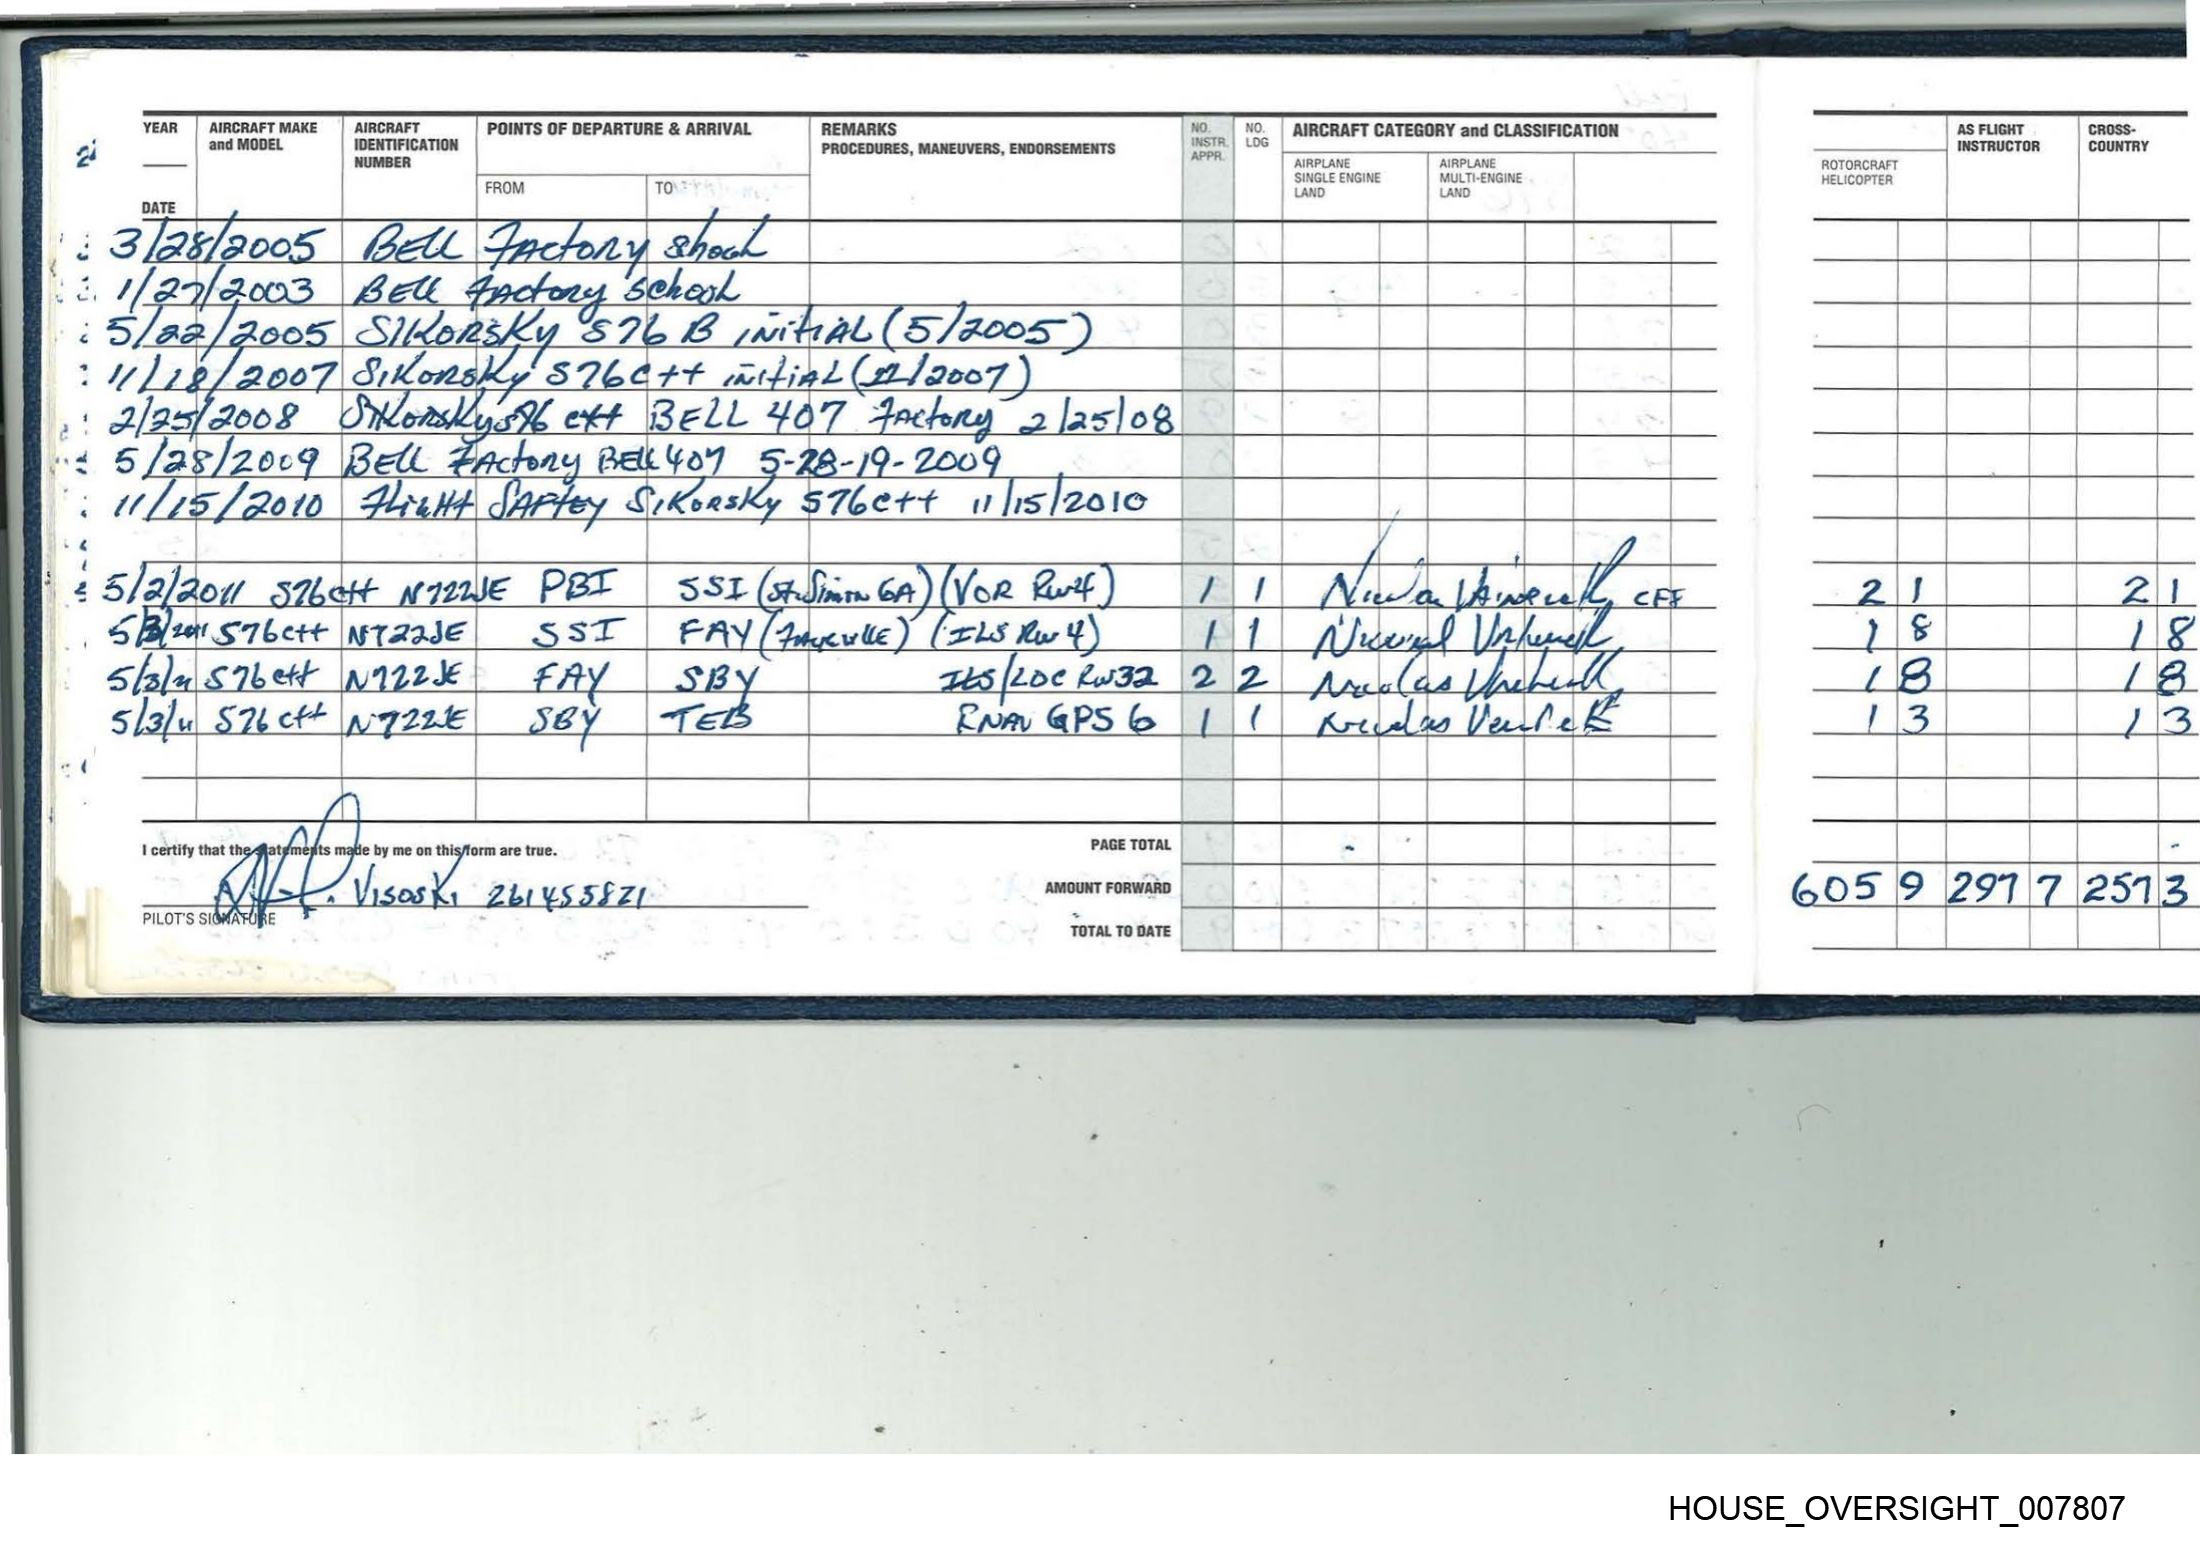 YEAR AIRCRAFT MAKE and MODEL AIRCRAFT IDENTIFICATION NUMBER POINTS OF DEPARTURE & ARRIVAL REMARKS PROCEDURES, MANEUVERS, ENDORSEMENTS NO. INSTR. APPR. NO. LDG AIRCRAFT CATEGORY and CLASSIFICATION AS FLIGHT INSTRUCTOR CROSS-COUNTRY
AIRPLANE SINGLE ENGINE LAND AIRPLANE MULTI-ENGINE LAND ROTORCRAFT HELICOPTER
DATE FROM TO
3/28/2005 BELL FActory
1/27/2003 BELL FActory School
5/22/2005 SIKORSKY S76 B INITIAL (5/2005)
11/18/2007 SIKORSKY S76C++ INITIAL (11/2007)
2/25/2008 SIKORSKY S76 C++ BELL 407 FActory 2/25/08
5/28/2009 BELL FActory BELL 407 5-28-19-2009
11/15/2010 FLiGHt SAFtey SIKORSKY S76C++ 11/15/2010
5/2/2011 S76C++ N722JE PBI SSI (St. Simon GA) (VOR RW4) 1 1 CFI 2 1 2 1
5/3/2011 S76C++ N722JE SSI FAY (ILS RW 4) 1 1 1 8 1 8
5/3/11 S76C++ N722JE FAY SBY ILS/LOC RW32 2 2 Nicolas 1 8 1 8
5/3/11 S76 C++ N722JE SBY TEB RNAV GPS 6 1 1 1 3 1 3
I certify that the statements made by me on this form are true. PAGE TOTAL
Visoski 261455821 AMOUNT FORWARD 6059 9 297 7 2573
PILOT'S SIGNATURE TOTAL TO DATE
HOUSE_OVERSIGHT_007807